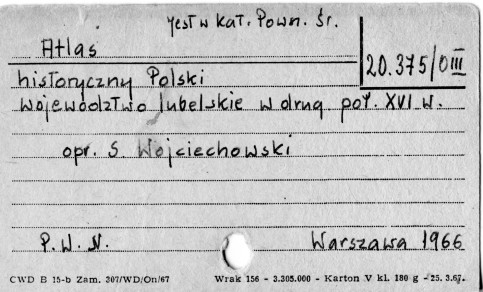 jest w kat. Pown. Śr.
Atlas
20.375/O III
historyczny Polski
województwo lubelskie w drug. poł. XVI w.
opr. S. Wojciechowski
P.W.N. Warszawa 1966
CWD B 15-b Zam. 307/WD/On/67 Wrak 156 - 3.305.000 - Karton V kl. 180 g - 25. 3.67.